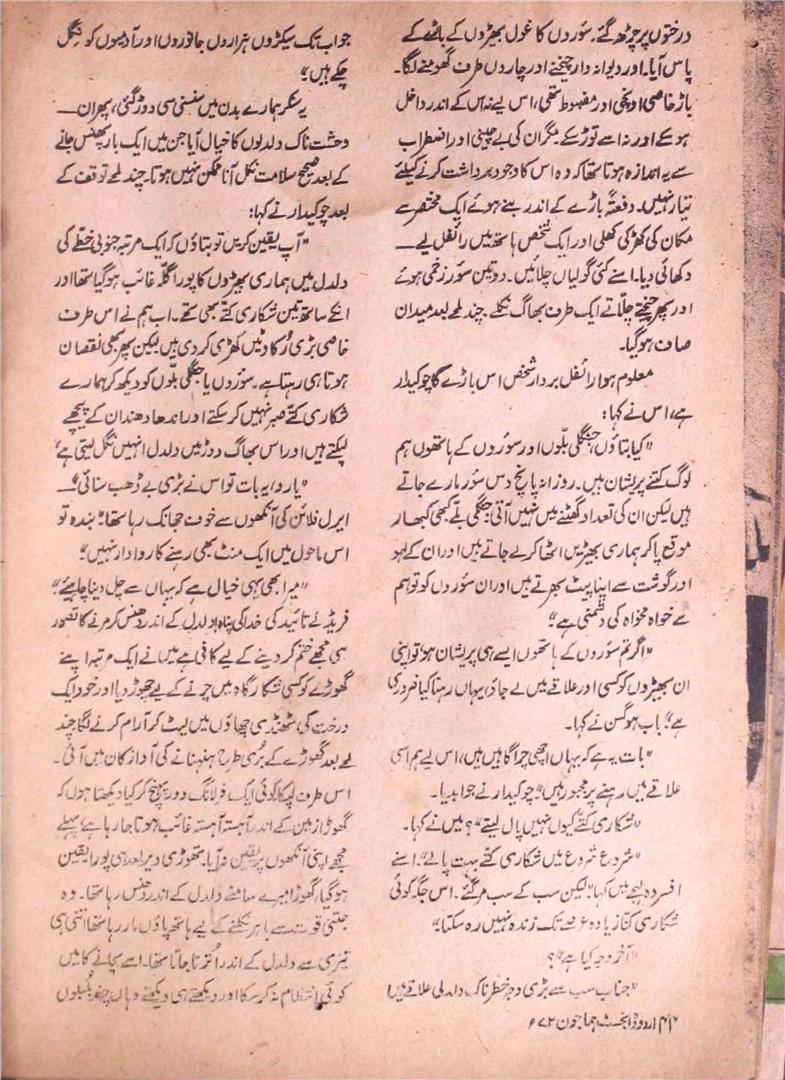 درختوں پر چڑھ گئے۔ سؤروں کا غول بھیڑوں کے باڑے کے
پاس آیا۔ اور دیوانہ وار چیخنے اور چاروں طرف گھومنے لگا۔
باڑ خاصی اونچی اور مضبوط تھی، اس لیے نہ اس کے اندر داخل
ہو سکے اور نہ اسے توڑ سکے۔ مگر ان کی بے چینی اور اضطراب
سے یہ اندازہ ہوتا تھا کہ وہ اس کا وجود برداشت کرنے کیلئے
تیار نہیں۔ دفعتہً باڑے کے اندر بنے ہوئے ایک مختصر سے
مکان کی کھڑکی کھلی اور ایک شخص ہاتھ میں رائفل لیے ــــ
دکھائی دیا۔ اسنے کئی گولیاں چلائیں۔ دو تین سؤر زخمی ہوئے
اور پھر چیختے چلّاتے ایک طرف بھاگ نکلے۔ چند لمحے بعد میدان
صاف ہو گیا۔
معلوم ہوا رائفل بردار شخص اس باڑے کا چوکیدار
ہے، اس نے کہا:
"کیا بتاؤں، جنگلی بلّوں اور سؤروں کے ہاتھوں ہم
لوگ کتنے پریشان ہیں۔ روزانہ پانچ دس سؤر مارے جاتے
ہیں لیکن ان کی تعداد گھٹنے میں نہیں آتی۔ جنگلی بلّے کبھی کبھار
موقع پا کر ہماری بھیڑیں اٹھا کر لے جاتے ہیں اور ان کے لہو
اور گوشت سے اپنا پیٹ بھرتے ہیں اور ان سؤروں کو تو ہم
سے خواہ مخواہ کی دشمنی ہے"
"اگر تم سؤروں کے ہاتھوں ایسے ہی پریشان ہو تو اپنی
ان بھیڑوں کو کسی اور علاقے میں لے جاؤ، یہاں رہنا کیا ضروری
ہے" باب ہوگسن نے کہا۔
"بات یہ ہے کہ یہاں اچھی چراگاہیں ہیں، اس لیے ہم اسی
علاقے میں رہنے پر مجبور ہیں" چوکیدار نے جواب دیا۔
"شکاری کتے کیوں نہیں پال لیتے"؟ میں نے کہا۔
"شروع شروع میں شکاری کتے بہت پالے" اسنے
افسردہ لہجے میں کہا "لیکن سب کے سب مر گئے۔ اس جگہ کوئی
شکاری کتا زیادہ عرصہ تک زندہ نہیں رہ سکتا"
"آخر وجہ کیا ہے"؟
"جناب سب سے بڑی وجہ خطرناک دلدلی علاقے ہیں
جو اب تک سیکڑوں ہزاروں جانوروں اور آدمیوں کو نگل
چکے ہیں"
یہ سنکر ہمارے بدن میں سنسنی سی دوڑ گئی، پھر ان ــــ
وحشت ناک دلدلوں کا خیال آیا جن میں ایک بار پھنس جانے
کے بعد صحیح سلامت نکل آنا ممکن نہیں ہوتا۔ چند لمحے توقف کے
بعد چوکیدار نے کہا:
"آپ یقین کریں تو بتاؤں کہ ایک مرتبہ جنوبی خطّے کی
دلدل میں ہماری بھیڑوں کا پورا گلّہ غائب ہو گیا تھا اور
انکے ساتھ تین شکاری کتے بھی تھے۔ اب ہم نے اس طرف
خاصی بڑی رُکاوٹیں کھڑی کر دی ہیں لیکن پھر بھی نقصان
ہوتا ہی رہتا ہے۔ سؤروں یا جنگلی بلّوں کو دیکھ کر ہمارے
شکاری کتے صبر نہیں کر سکتے اور اندھا دھند ان کے پیچھے
لپکتے ہیں اور اس بھاگ دوڑ میں دلدل انہیں نگل لیتی ہے"
"یارو، یہ بات تو اس نے بڑی بے ڈھب سنائی" ــــ
ایرل فلائن کی آنکھوں سے خوف جھانک رہا تھا "بندہ تو
اس ماحول میں ایک منٹ بھی رہنے کا روادار نہیں"
"میرا بھی یہی خیال ہے کہ یہاں سے چل دینا چاہیئے"
فریڈ نے تائید کی خدا کی پناہ! دلدل کے اندر دھنس کر مرنے کا تصور
ہی مجھے ختم کر دینے کے لیے کافی ہے میں نے ایک مرتبہ اپنے
گھوڑے کو کسی شکار گاہ میں چرنے کے لیے چھوڑ دیا اور خود ایک
درخت کی ٹھنڈی چھاؤں میں لیٹ کر آرام کرنے لگا چند
لمحے بعد گھوڑے کے بُری طرح ہنہنانے کی آواز کان میں آئی۔
اس طرف لپکا کوئی ایک فرلانگ دور پہنچ کر کیا دیکھتا ہوں کہ
گھوڑا زمین کے اندر آہستہ آہستہ غائب ہوتا جا رہا ہے، پہلے
مجھے اپنی آنکھوں پر یقین نہ آیا۔ تھوڑی دیر بعد ہی پورا یقین
ہو گیا، گھوڑا میرے سامنے دلدل کے اندر دھنس رہا تھا۔ وہ
جتنی قوت سے باہر نکلنے کے لیے ہاتھ پاؤں مار رہا تھا اتنی ہی
تیزی سے دلدل کے اندر اُترتا جاتا تھا۔ اسے بچانے کا میں
کوئی انتظام نہ کر سکا اور دیکھتے ہی دیکھتے وہاں چند بُلبلوں
اردو ڈائجسٹ ہما جون ۷۲ء